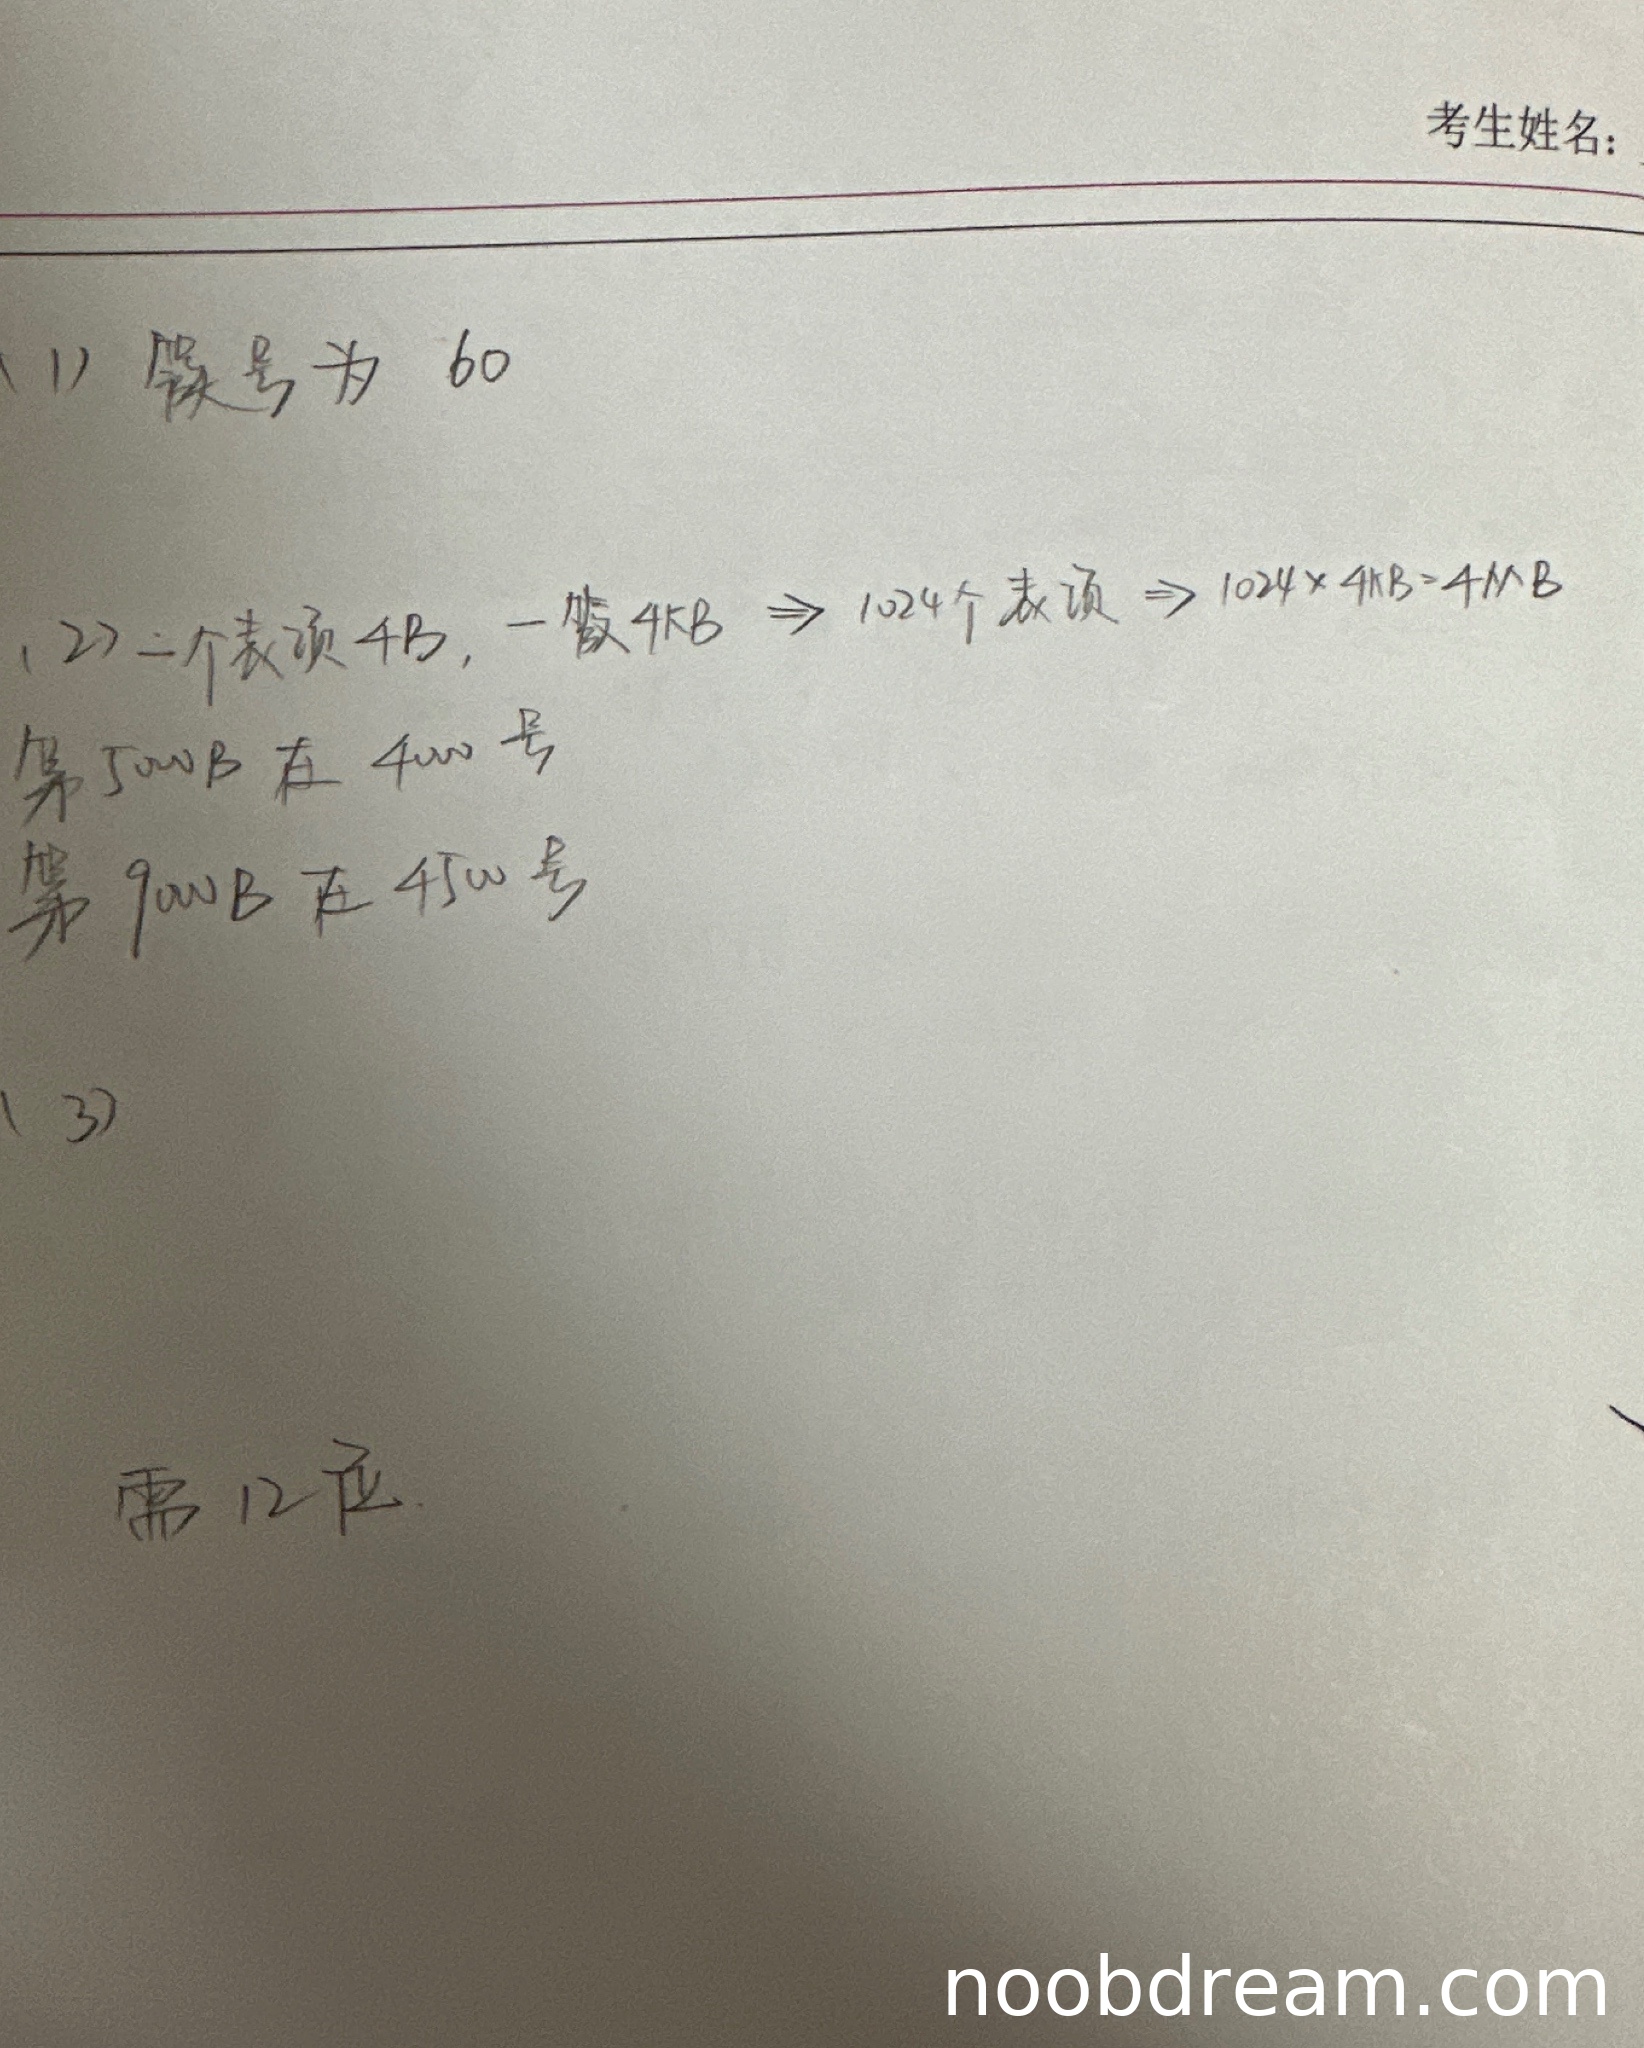 考生姓名:
(1) 簇号为 60
(2) 一个表项4B, 一簇4KB ⇒ 1024个表项 ⇒ 1024×4KB=4MB
第5000B 在 4000 号
第 9000B 在 4500 号
(3)
需 12 位.
noobdream.com